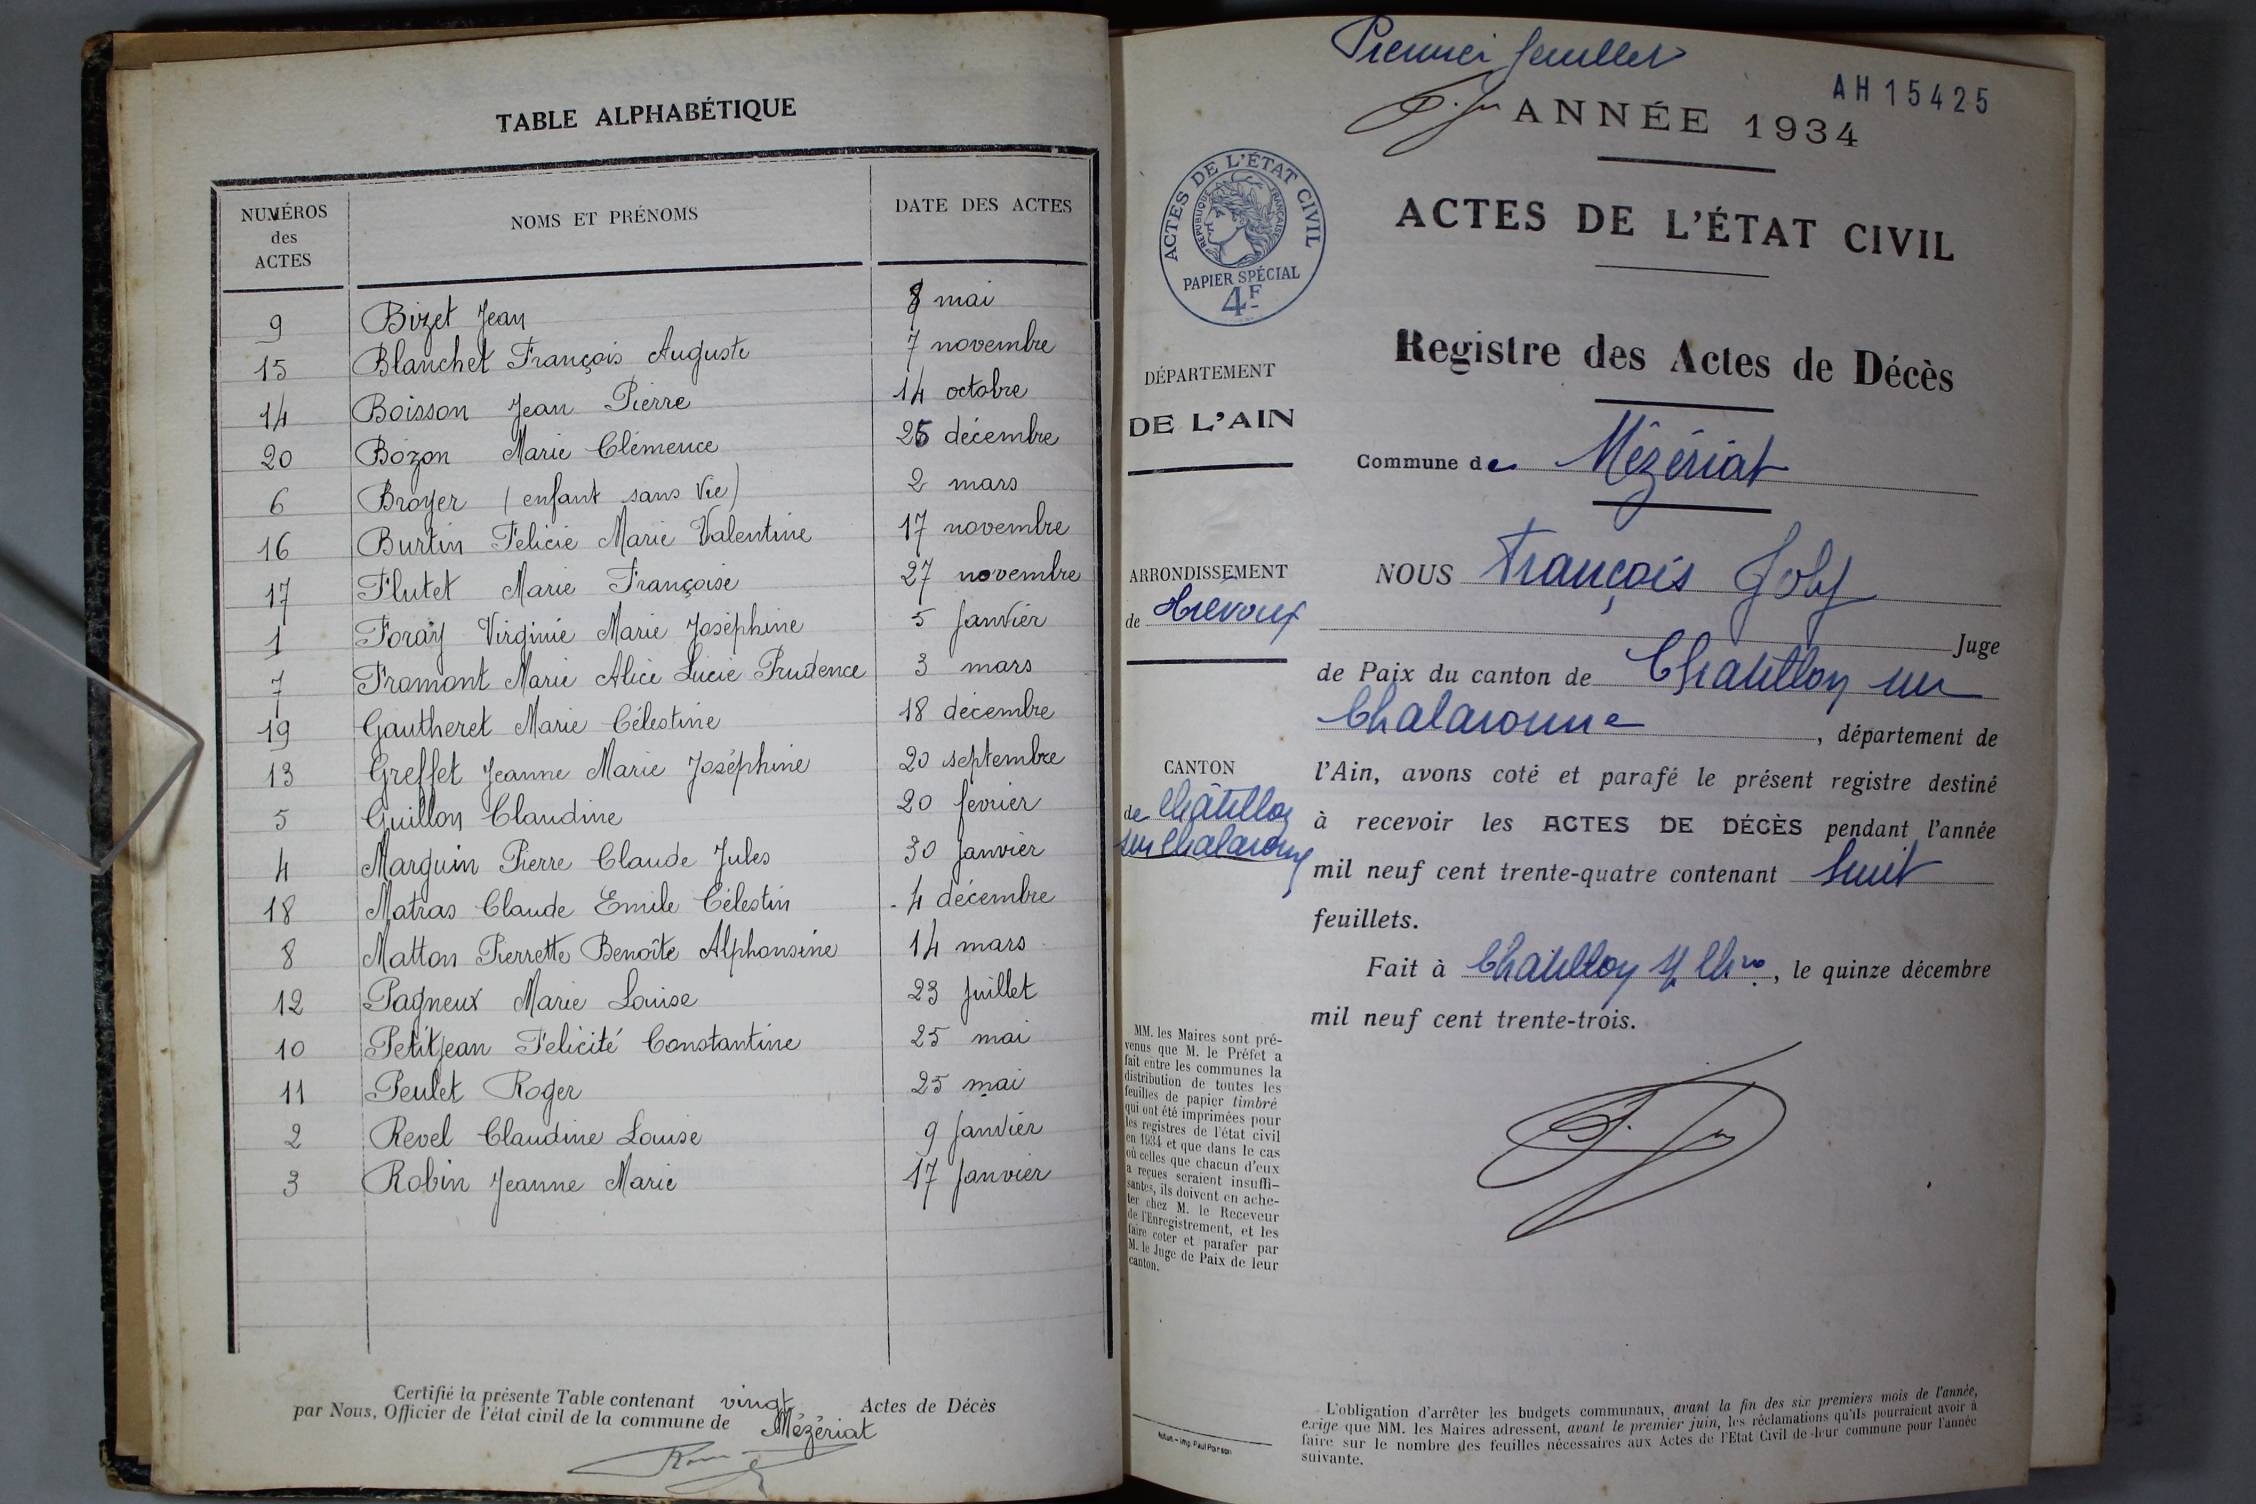 TABLE ALPHABÉTIQUE
NUMÉROS des ACTES NOMS ET PRÉNOMS DATE DES ACTES
9 Bizet Jean 8 mai
15 Blanchet François Auguste 7 novembre
14 Boisson Jean Pierre 14 octobre
20 Bozon Marie Clémence 26 décembre
6 Broyer (enfant sans vie) 2 mars
16 Burtin Félicie Marie Valentine 17 novembre
17 Flutet Marie Françoise 27 novembre
1 Foray Virginie Marie Joséphine 5 Janvier
7 Fromont Marie Alice Lucie Prudence 3 mars
19 Gautheret Marie Célestine 18 décembre
13 Greffet Jeanne Marie Joséphine 20 septembre
5 Guillon Claudine 20 février
4 Marguin Pierre Claude Jules 30 Janvier
18 Matras Claude Emile Célestin 4 décembre
8 Matton Pierrette Benoîte Alphonsine 14 mars
12 Pagneux Marie Louise 23 Juillet
10 Petitjean Félicité Constantine 25 mai
11 Peulet Roger 25 mai
2 Revel Claudine Louise 9 Janvier
3 Robin Jeanne Marie 17 Janvier
Certifié la présente Table contenant vingt Actes de Décès
par Nous, Officier de l'état civil de la commune de Mézériat
Premier feuillet
AH15425
ANNÉE 1934
ACTES DE L'ÉTAT CIVIL
RÉPUBLIQUE FRANÇAISE
PAPIER SPÉCIAL
4F
ACTES DE L'ÉTAT CIVIL
Registre des Actes de Décès
DÉPARTEMENT
DE L'AIN
Commune de Mézériat
ARRONDISSEMENT
de Trévoux
CANTON
de Châtillon
sur Chalaronne
NOUS François Joly
Juge
de Paix du canton de Chatillon sur
Chalaronne, département de
l'Ain, avons coté et parafé le présent registre destiné
à recevoir les ACTES DE DÉCÈS pendant l'année
mil neuf cent trente-quatre contenant huit
feuillets.
Fait à Chatillon s/ Chne, le quinze décembre
mil neuf cent trente-trois.
MM. les Maires sont pré-
venus que M. le Préfet a
fait entre les communes la
distribution de toutes les
feuilles de papier timbré
qui ont été imprimées pour
les registres de l'état civil
en 1934 et que dans le cas
où celles que chacun d'eux
a reçues seraient insuffi-
santes, ils doivent en ache-
ter chez M. le Receveur
de l'Enregistrement, et les
faire coter et parafer par
M. le Juge de Paix de leur
canton.
L'obligation d'arrêter les budgets communaux, avant la fin des six premiers mois de l'année,
exige que MM. les Maires adressent, avant le premier juin, les réclamations qu'ils pourraient avoir à
faire sur le nombre des feuilles nécessaires aux Actes de l'Etat Civil de leur commune pour l'année
suivante.